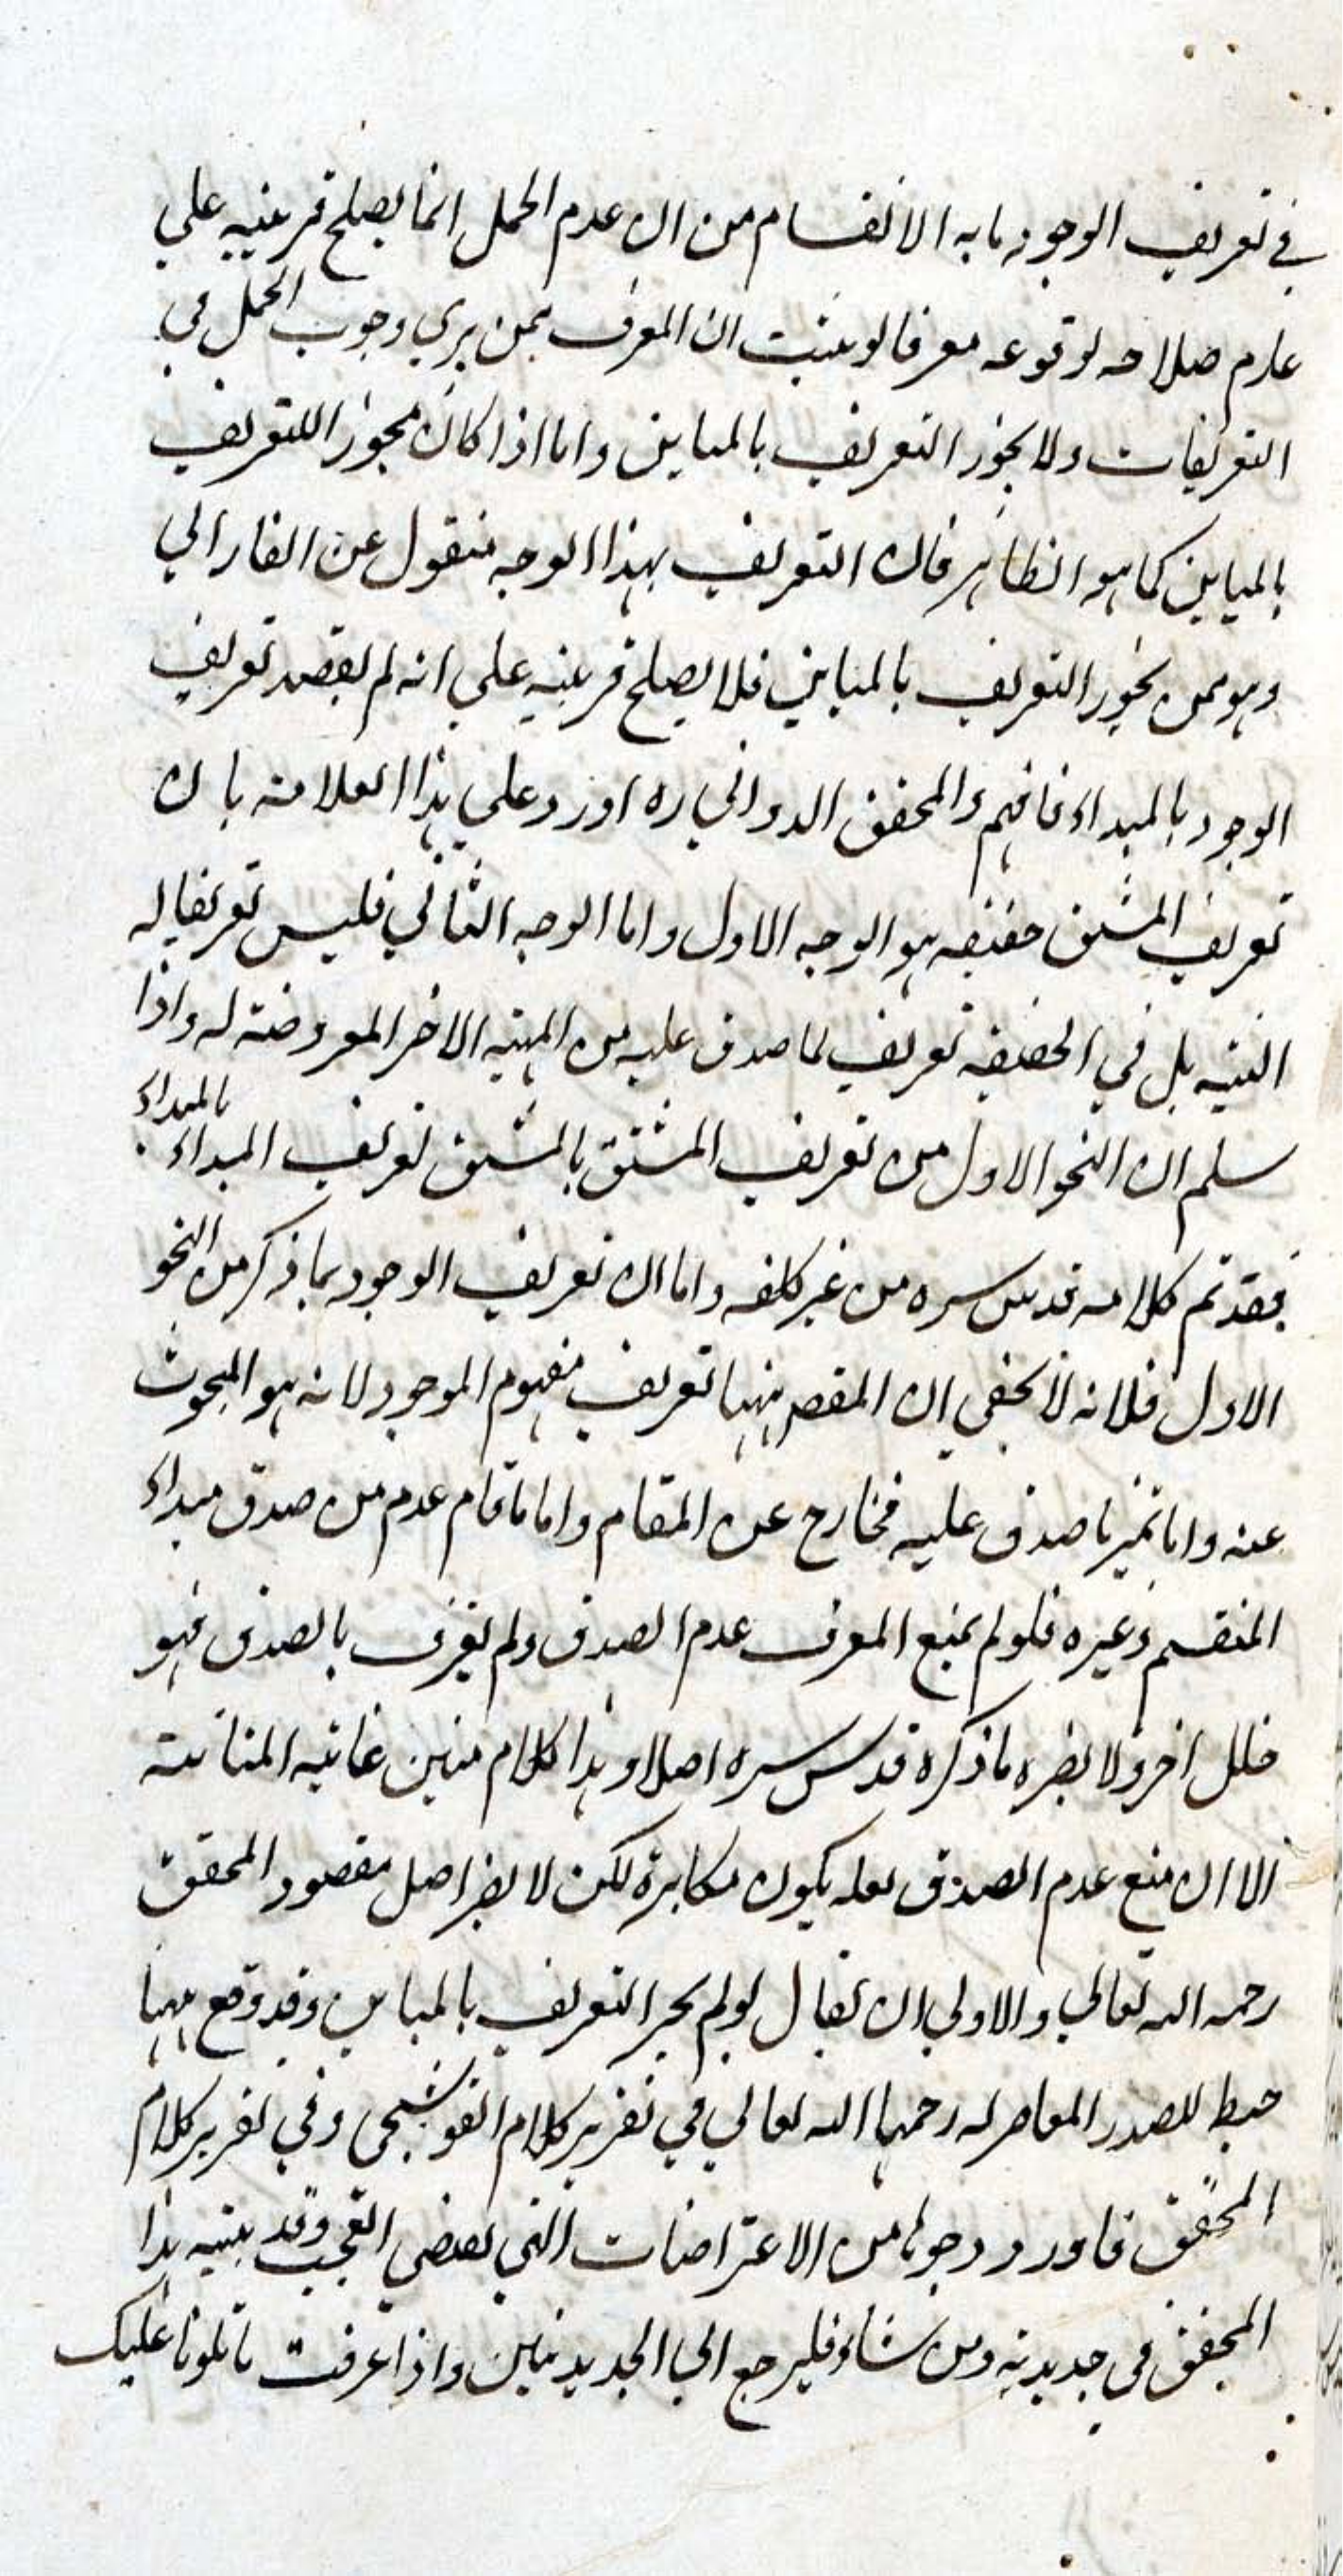 في تعريف الوجود ما به الانقسام من ان عدم الحمل انما يصلح قرينيه علي
عدم صلاحه لوقوعه معرفا لو يثبت ان المعرف ممن يري وجوب الحمل في
التعريفات ولا يجوز التعريف بالمباين واما اذا كان مجوزا للتعريف
بالمباين كما هو الظاهر فان التعريف بهذا الوجه منقول عن الفارابي
وهو ممن يجوز التعريف بالمباين فلا يصلح قرينيه علي انه لم يقصد تعريف
الوجود بالمبداء فافهم والمحقق الدواني ره اورد علي هذا العلامة بان
تعريف المشتق حقيقه هو الوجه الاول واما الوجه الثاني فليس تعريفا له
البتيه بل في الحقيقه تعريف لما صدق عليه من المهيه الاخر المعروضة له واذا
سلم ان النحو الاول من تعريف المشتق بالمشتق تعريف المبداء بالمبداء
فقد تم كلامه قدس سره من غير كلفه واما ان تعريف الوجود بما ذكر من النحو
الاول فلانه لا يخفي ان المقصر ههنا تعريف مفهوم الموجود لانه هو المبحوث
عنه واما تميز ما صدق عليه فخارج عن المقام واما ما قام عدم من صدق مبداء
المنقسم وغيره فلو لم يمنع المعرف عدم الصدق ولم يعرف بالصدق فهو
خلل اخر ولا يضره ما ذكره قدس سره اصلا وهذا كلام متين غايه المتانة
الا ان منع عدم الصدق لعله يكون مكابرة لكن لا يضر اصل مقصود المحقق
رحمه الله تعالي والاولي ان يقال لو لم يجز التعريف بالمباين وقد وقع ههنا
خبط للصدر المعاصر له رحمهما الله تعالي في تقرير كلام القوشجي وفي تقرير كلام
المحقق فاورد وجوها من الاعتراضات التي يقضي العجب وقد بينه هذا
المحقق في جديديه ومن شاء فليرجع الي الجديديتين واذا عرفت ما تلونا عليك